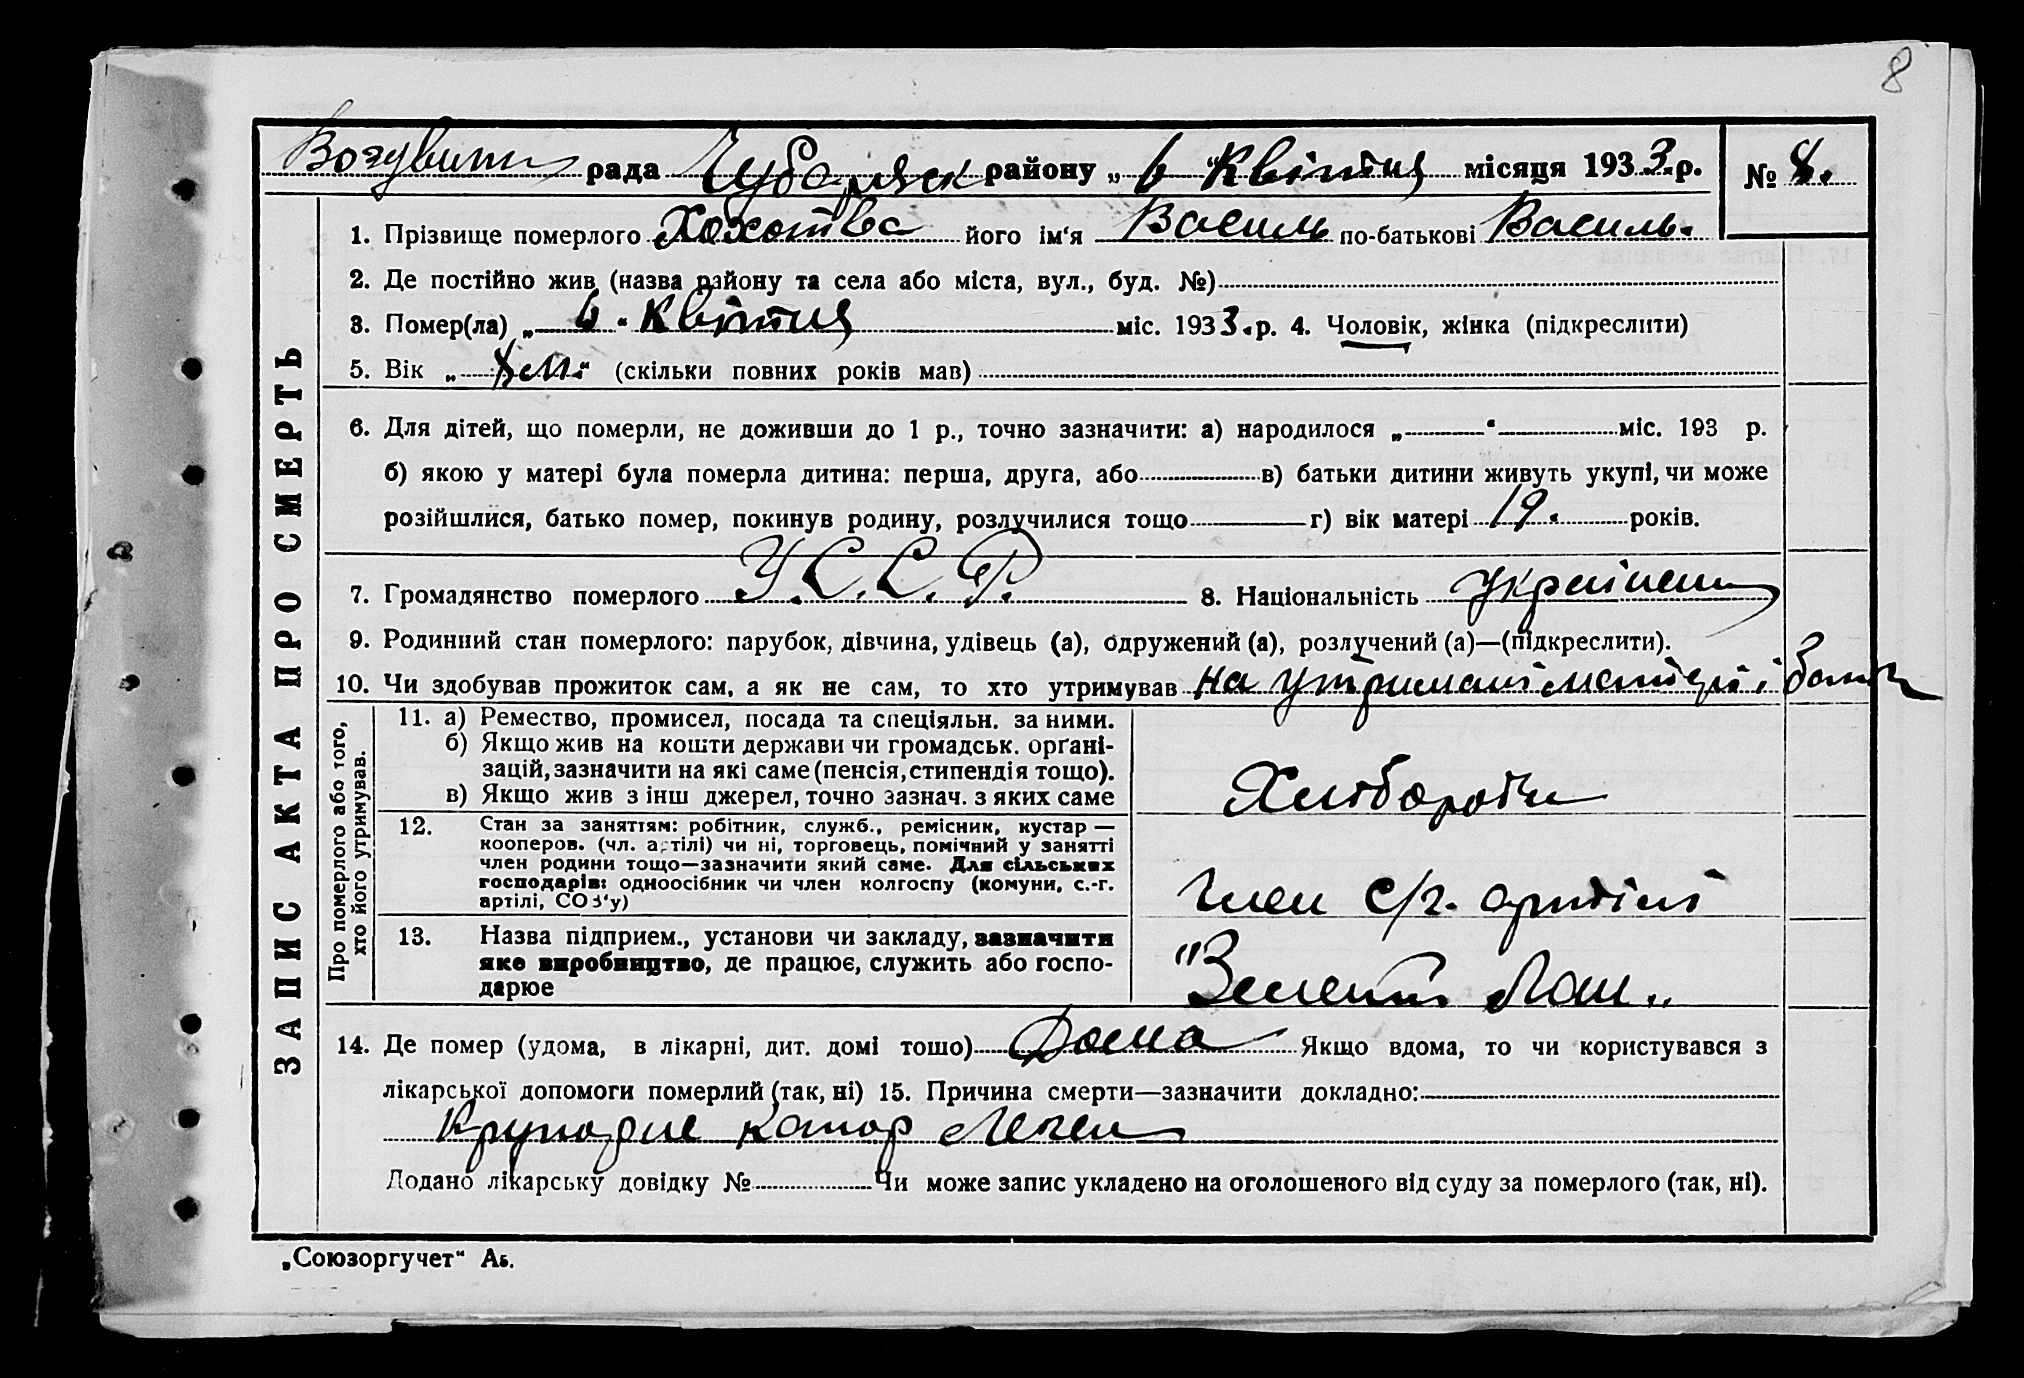 8
рада Чубарівск району „ 6 “ Квітня місяця 1933 р. № 8.
ЗАПИС АКТА ПРО СМЕРТЬ
1. Прізвище померлого його ім‘я Василь по-батькові Василь.
2. Де постійно жив (назва району та села або міста, вул., буд. №)
3. Помер(ла) „ 6 “ Квітня міс. 1933 р. 4. Чоловік, жінка (підкреслити)
5. Вік „ 8 м. “ (скільки повних років мав)
6. Для дітей, що померли, не доживши до 1 р., точно зазначити: а) народилося „ “ міс. 193 р.
б) якою у матері була померла дитина: перша, друга, або в) батьки дитини живуть укупі, чи може
розійшлися, батько помер, покинув родину, розлучилися тощо г) вік матері 19. років.
7. Громадянство померлого У.С.С.Р. 8. Національність Українець
9. Родинний стан померлого: парубок, дівчина, удівець (а), одружений (а), розлучений (а)—(підкреслити).
10. Чи здобував прожиток сам, а як не сам, то хто утримував на утримані матері і батьк
Про померлого або того, хто його утримував.
11. а) Ремество, промисел, посада та спеціяльн. за ними.
б) Якщо жив на кошти держави чи громадськ. орґані-
зацій, зазначити на які саме (пенсія, стипендія тощо).
в) Якщо жив з інш джерел, точно зазнач. з яких саме
Хлібороби
12. Стан за заняттям: робітник, служб., ремісник, кустар —
кооперов. (чл. артілі) чи ні, торговець, помічний у занятті
член родини тощо—зазначити який саме. Для сільських
господарів: одноосібник чи член колгоспу (комуни, с.-г.
артілі, СОЗ‘у)
Член С/г. артілі
13. Назва підприєм., установи чи закладу, зазначити
яке виробництво, де працює, служить або госпо-
дарює
"Зелений Лан"
14. Де помер (удома, в лікарні, дит. домі тошо) Дома Якщо вдома, то чи користувався з
лікарської допомоги померлий (так, ні) 15. Причина смерти—зазначити докладно:
Додано лікарську довідку № Чи може запис укладено на оголошеного від суду за померлого (так, ні).
„Союзоргучет“ А5.